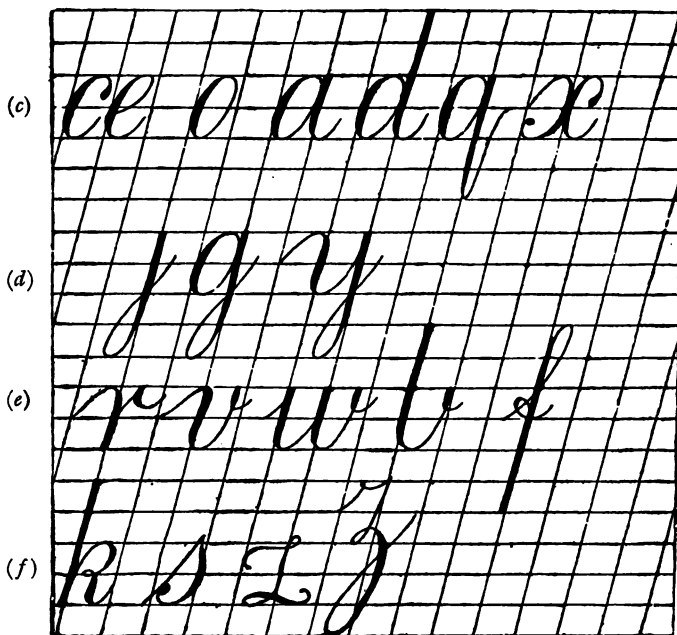 (c) ce o a d q x
(d) j g y
(e) r v w b f
(f) k s z z